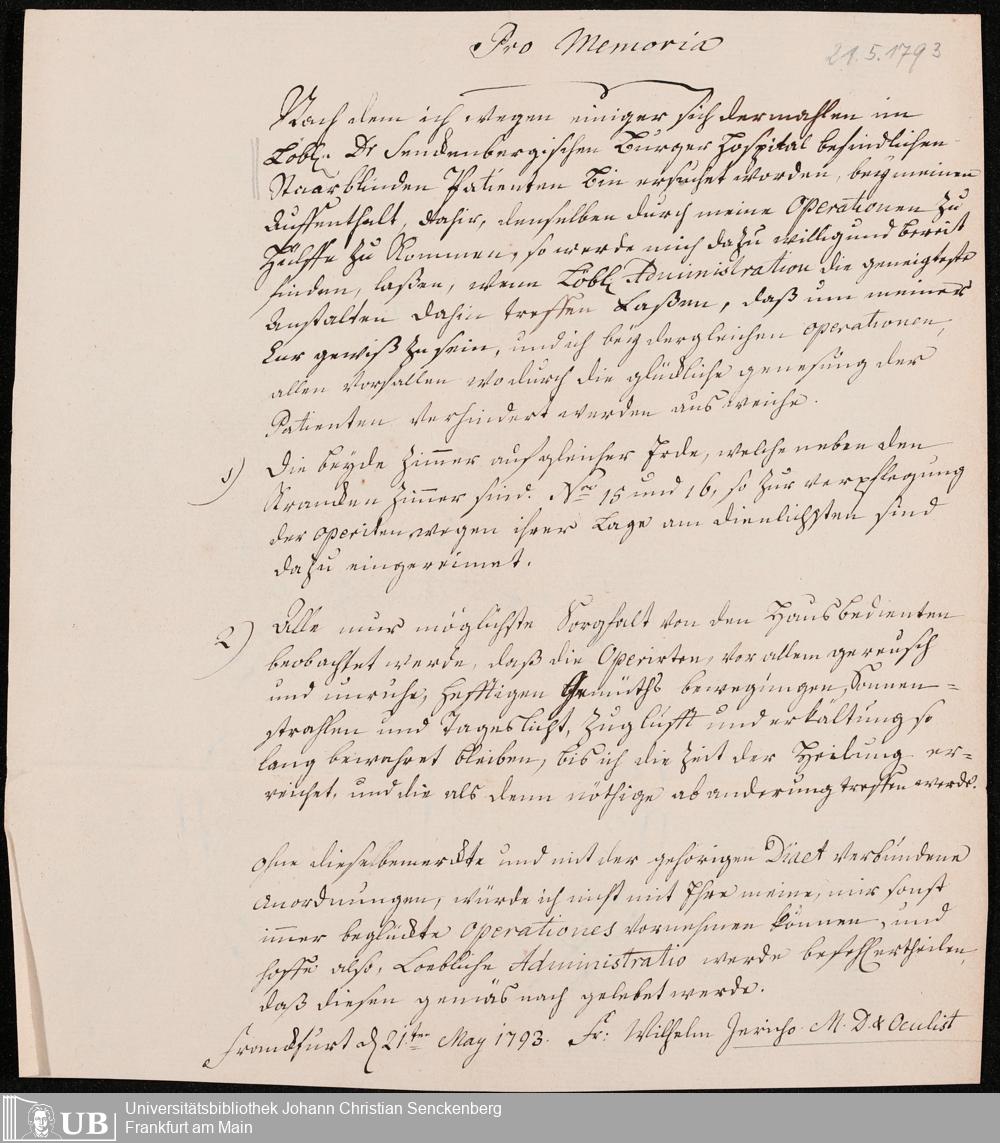 Pro Memoria
21.5.1793
Nach dem ich wegen einiger sich dermahlen im
Löbl. Dr Senckenbergischen Burger Hospital befindlichen
Staarblinden Patienten bin ersuchet worden, bey meinen
Auffenthalt, dahir, denselben durch meine Operationen zu
Hülffe zu Kommen, so werde mich dazu willig und bereit
finden, laßen, wenn Löbl. Administration die geneigteste
Anstalten dahin treffen Laßen, daß um meiner
Cur gewiß zu sein, und ich bey dergleichen operationen,
allen Vorfallen wodurch die glückliche genesung der
Patienten verhindert werden aus weiche.
1) Die beyde Zimmer auf gleicher Erde, welche neben den
Krancken Zimmer sind. Nro 15 und 16, so zur verpflegung
der operirten wegen ihrer Lage am dienlichsten sind
dazu eingereimet.
2) Alle nur möglichste Sorgfalt von den Hausbedienten
beobachtet werde, daß die Operirten, vor allem gereusch
und unruhe, hefftigen Gemüths bewegungen, Sonnen-
strahlen und Tageslicht, Zuglufft und erkältung so
lang bewahret bleiben, bis ich die Zeit der Heilung er-
reichet, und die als denn nöthige abanderung treffen werde.
Ohne diese bemerckte und mit der gehörigen Diaet verbundene
Anordnungen, würde ich nicht mit Ehre meine, mir sonst
immer beglückte operationes vornehmen können, und
hoffe also, Loebliche Administratio werde befehl ertheilen,
daß diesen gemäs nach gelebet werde.
Franckfurt d 21ten May 1793. Fr: Wilhelm Jericho M. D & Oculist
UB
Universitätsbibliothek Johann Christian Senckenberg
Frankfurt am Main